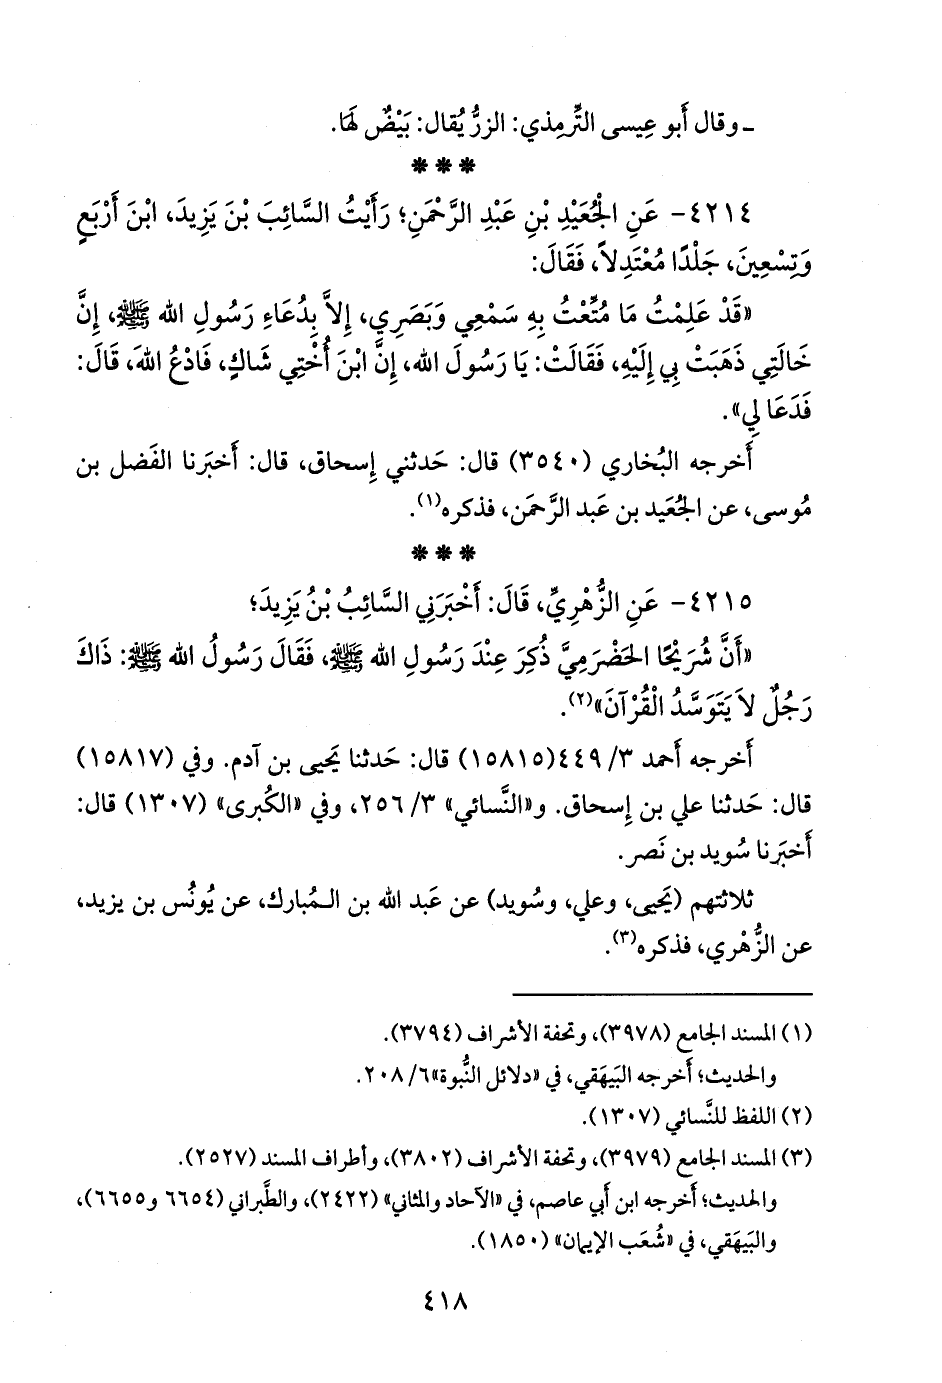 ـ وقال أَبو عِيسى التِّرمِذي: الزرُّ يُقال: بَيْضٌ لَها.
* * *
٤٢١٤- عَنِ الْجُعَيْدِ بْنِ عَبْدِ الرَّحْمَنِ؛ رَأَيْتُ السَّائِبَ بْنَ يَزِيدَ، ابْنَ أَرْبَعٍ
وَتِسْعِينَ، جَلْدًا مُعْتَدِلاً، فَقَالَ:
«قَدْ عَلِمْتُ مَا مُتِّعْتُ بِهِ سَمْعِي وَبَصَرِي، إِلاَّ بِدُعَاءِ رَسُولِ الله ﷺ، إِنَّ
خَالَتِي ذَهَبَتْ بِي إِلَيْهِ، فَقَالَتْ: يَا رَسُولَ الله، إِنَّ ابْنَ أُخْتِي شَاكٍ، فَادْعُ اللهَ، قَالَ:
فَدَعَا لِي».
أَخرجه البُخاري (٣٥٤٠) قال: حَدثني إِسحاق، قال: أَخبَرنا الفَضل بن
مُوسى، عن الجُعَيد بن عَبد الرَّحمَن، فذكره(١).
* * *
٤٢١٥- عَنِ الزُّهْرِيِّ، قَالَ: أَخْبَرَنِي السَّائِبُ بْنُ يَزِيدَ؛
«أَنَّ شُرَيْحًا الحَضْرَمِيَّ ذُكِرَ عِنْدَ رَسُولِ الله ﷺ، فَقَالَ رَسُولُ الله ﷺ: ذَاكَ
رَجُلٌ لاَ يَتَوَسَّدُ الْقُرْآنَ»(٢).
أَخرجه أَحمد ٣/ ٤٤٩(١٥٨١٥) قال: حَدثنا يَحيى بن آدم. وفي (١٥٨١٧)
قال: حَدثنا علي بن إِسحاق. و«النَّسائي» ٣/ ٢٥٦، وفي «الكُبرى» (١٣٠٧) قال:
أَخبَرنا سُويد بن نَصر.
ثلاثتهم (يَحيى، وعلي، وسُويد) عن عَبد الله بن الـمُبارك، عن يُونُس بن يزيد،
عن الزُّهْري، فذكره(٣).
(١) المسند الجامع (٣٩٧٨)، وتحفة الأشراف (٣٧٩٤).
والحديث؛ أَخرجه البَيهَقي، في «دلائل النُّبوة»٦/ ٢٠٨.
(٢) اللفظ للنَّسائي (١٣٠٧).
(٣) المسند الجامع (٣٩٧٩)، وتحفة الأشراف (٣٨٠٢)، وأطراف المسند (٢٥٢٧).
والحديث؛ أَخرجه ابن أَبي عاصم، في «الآحاد والمثاني» (٢٤٢٢)، والطَّبراني (٦٦٥٤ و٦٦٥٥)،
والبَيهَقي، في «شُعَب الإيمان» (١٨٥٠).
٤١٨